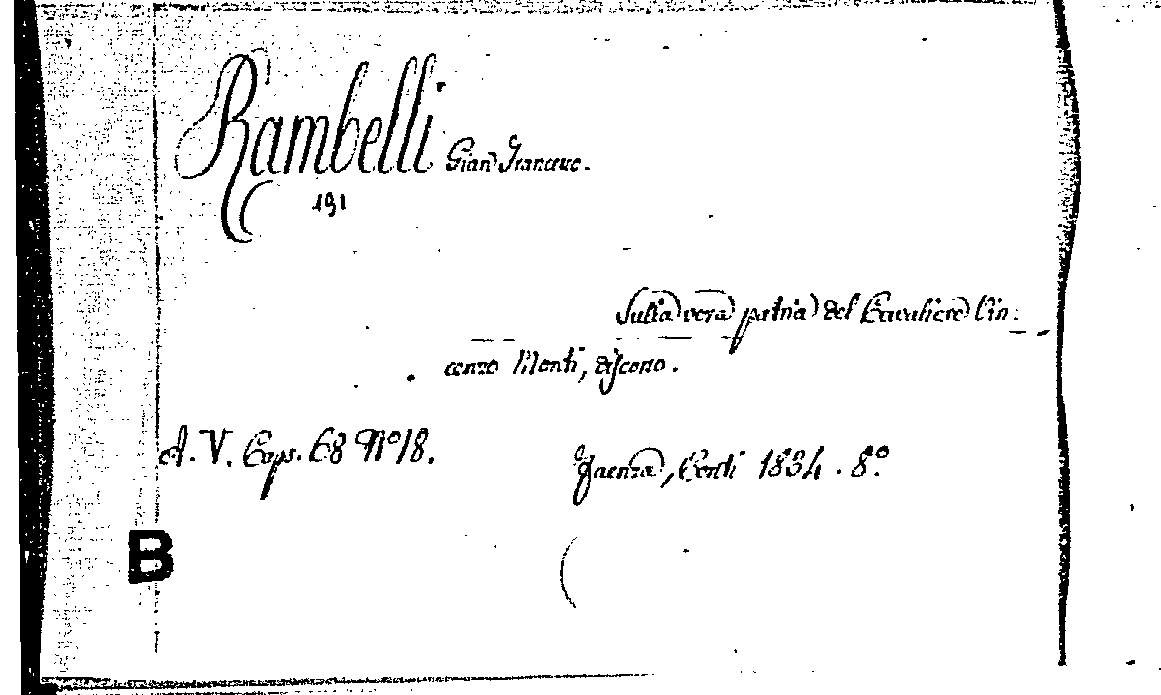 Rambelli Gian Francesco.
191
Sulla vera patria del Cavaliere Vin:
cenzo Monti, discorso.
A. V. Caps. 68 N.º 18.
Faenza, Conti 1834. 8.º
B